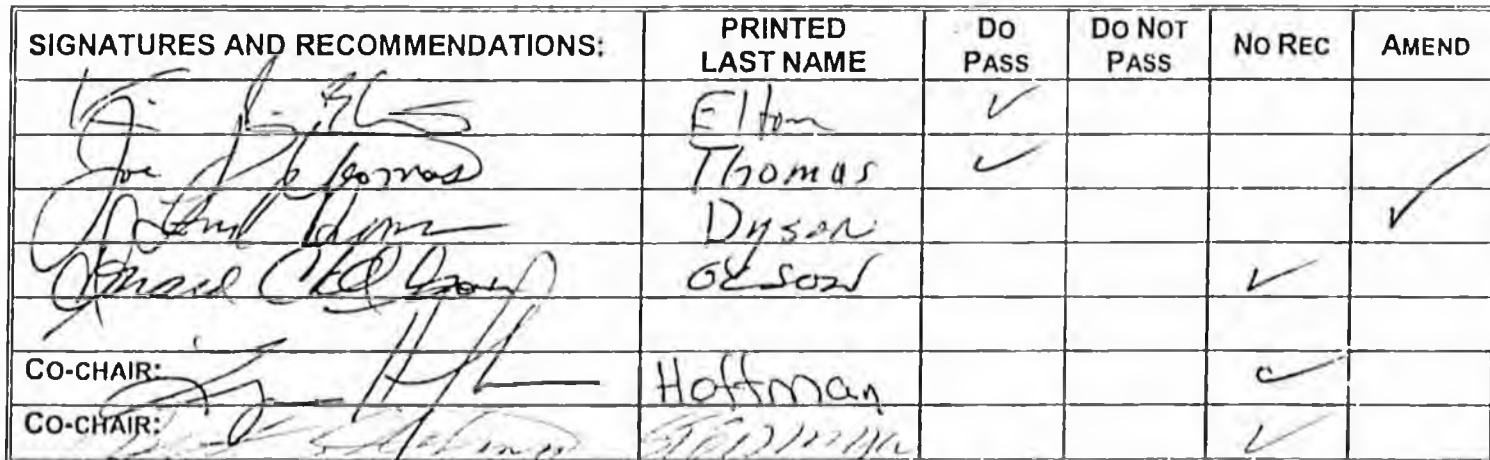 SIGNATURES AND RECOMMENDATIONS: PRINTED LAST NAME DO PASS DO NOT PASS NO REC AMEND
Elton ✓
Joe Thomas Thomas ✓
Dyson ✓
OLSON ✓
CO-CHAIR: Hoffman ✓
CO-CHAIR: STEDMAN ✓